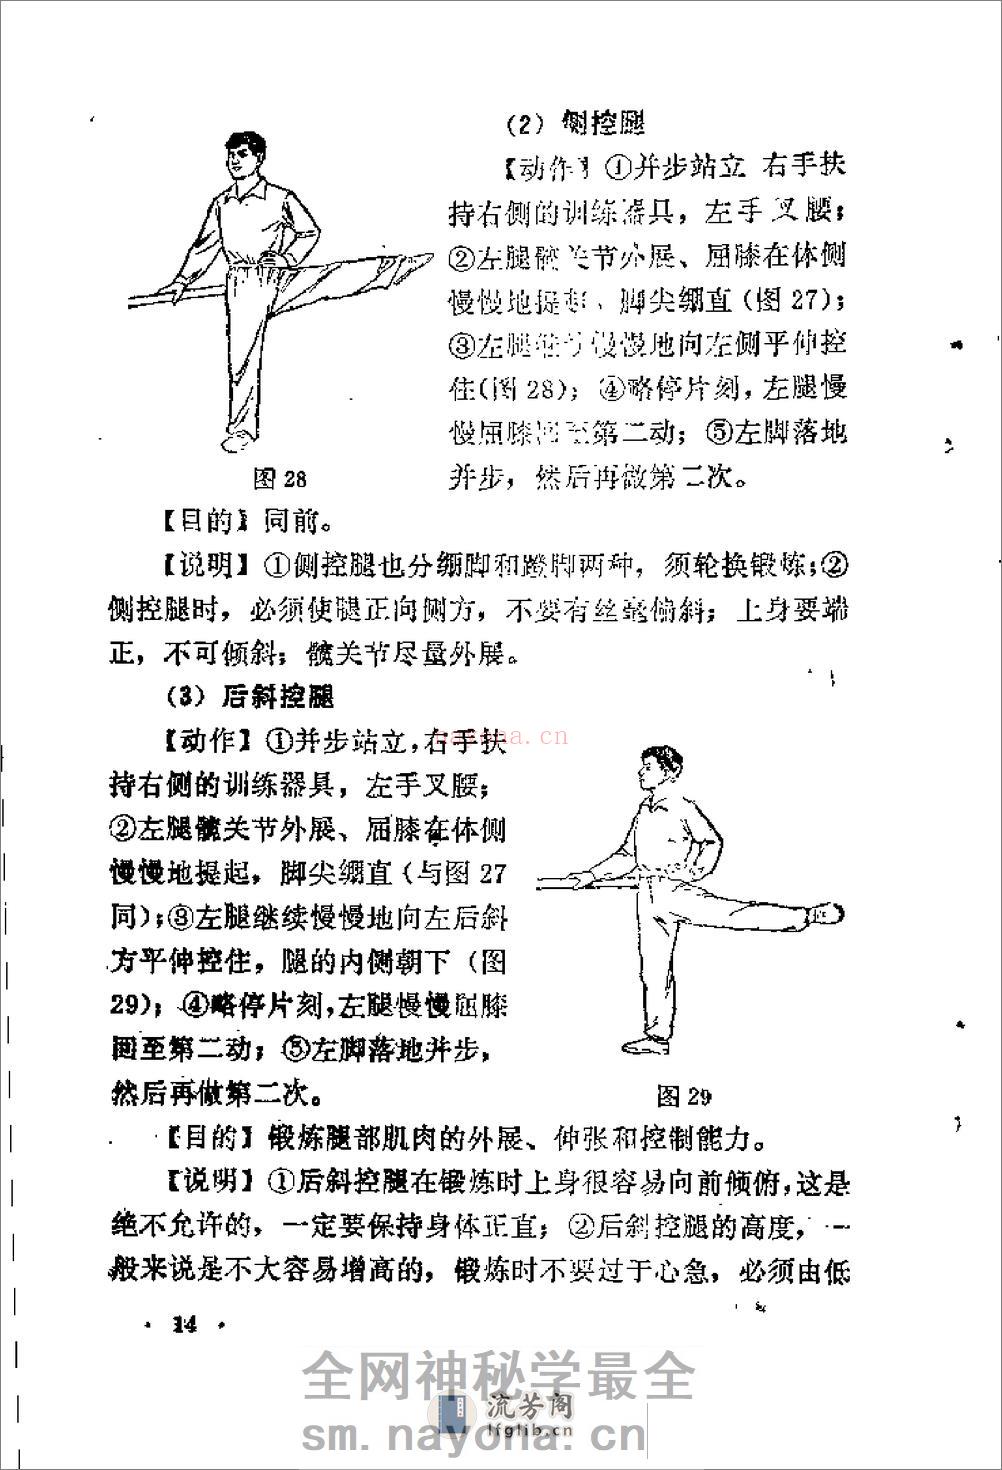 (2) 侧控腿
【动作】①并步站立 右手扶
持右侧的训练器具，左手叉腰；
②左腿髋关节外展、屈膝在体侧
慢慢地提起、脚尖绷直(图 27)；
③左腿继续慢慢地向左侧平伸控
住(图 28)；④略停片刻，左腿慢
慢屈膝回至第二动；⑤左脚落地
并步，然后再做第二次。
图 28
【目的】同前。
【说明】①侧控腿也分绷脚和蹬脚两种，须轮换锻炼；②
侧控腿时，必须使腿正向侧方，不要有丝毫偏斜；上身要端
正，不可倾斜；髋关节尽量外展。
(3) 后斜控腿
【动作】①并步站立，右手扶
持右侧的训练器具，左手叉腰；
②左腿髋关节外展、屈膝在体侧
慢慢地提起，脚尖绷直(与图 27
同)；③左腿继续慢慢地向左后斜
方平伸控住，腿的内侧朝下 (图
29)；④略停片刻，左腿慢慢屈膝
回至第二动；⑤左脚落地并步，
然后再做第二次。
图 29
【目的】锻炼腿部肌肉的外展、伸张和控制能力。
【说明】①后斜控腿在锻炼时上身很容易向前倾俯，这是
绝不允许的，一定要保持身体正直；②后斜控腿的高度，一
般来说是不大容易增高的，锻炼时不要过于心急，必须由低
· 14 ·
全网神秘学最全
流芳阁
lfglib.cn
sm.nayona.cn